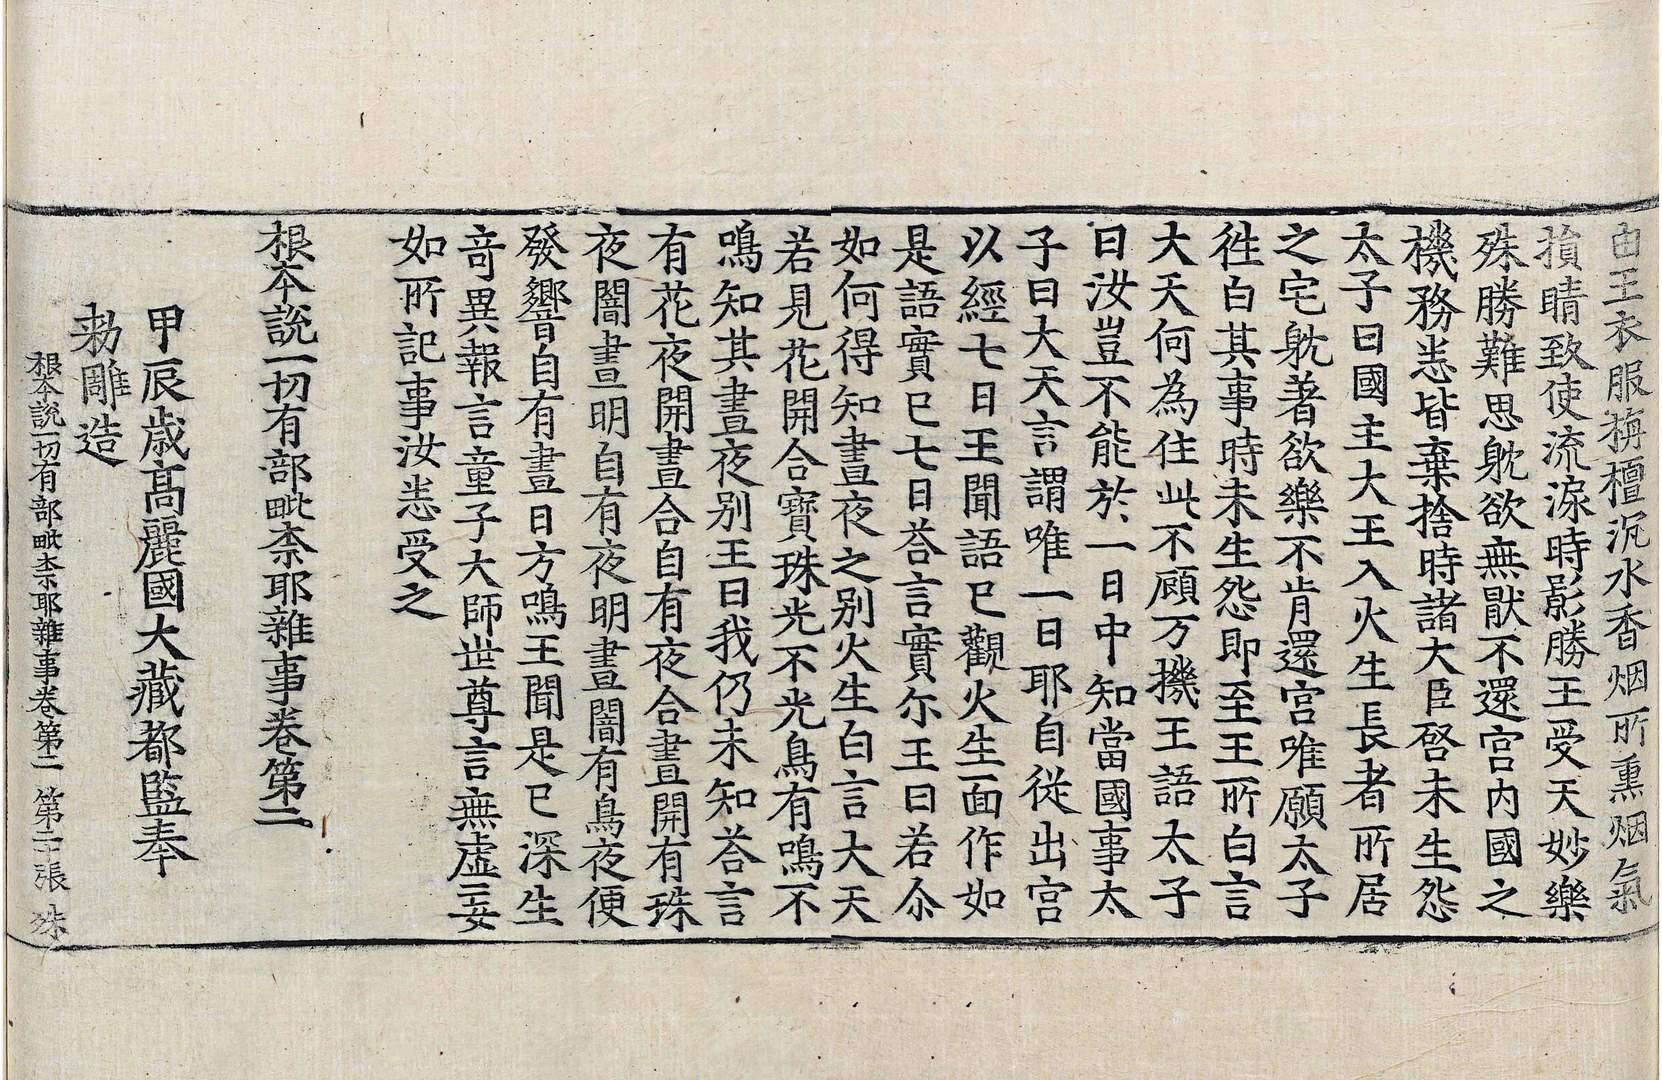 由王衣服栴檀沉水香烟所熏烟氣
損睛致使流淚時影勝王受天妙樂
殊勝難思躭欲無猒不還宮內國之
機務恙皆棄捨時諸大臣啓未生怨
太子曰國主大王入火生長者所居
之宅躭著欲樂不肯還宮唯願太子
徃白其事時未生怨即至王所白言
大天何為住此不顧万機王語太子
曰汝豈不能於一日中知當國事太
子曰大天言謂唯一日耶自從出宮
以經七日王聞語已觀火生面作如
是語實已七日荅言實尒王曰若尒
如何得知晝夜之別火生白言大天
若見花開合寶珠光不光鳥有鳴不
鳴知其晝夜別王曰我仍未知荅言
有花夜開晝合自有夜合晝開有珠
夜闇晝明自有夜明晝闇有鳥夜便
發響自有晝日方鳴王聞是已深生
竒異報言童子大師世尊言無虛妄
如所記事汝恙受之
根本說一切有部毗奈耶雜事卷第二
甲辰歳髙麗國大藏都監奉
勑雕造
根本說一切有部毗奈耶雜事卷第二 第二十張 殊